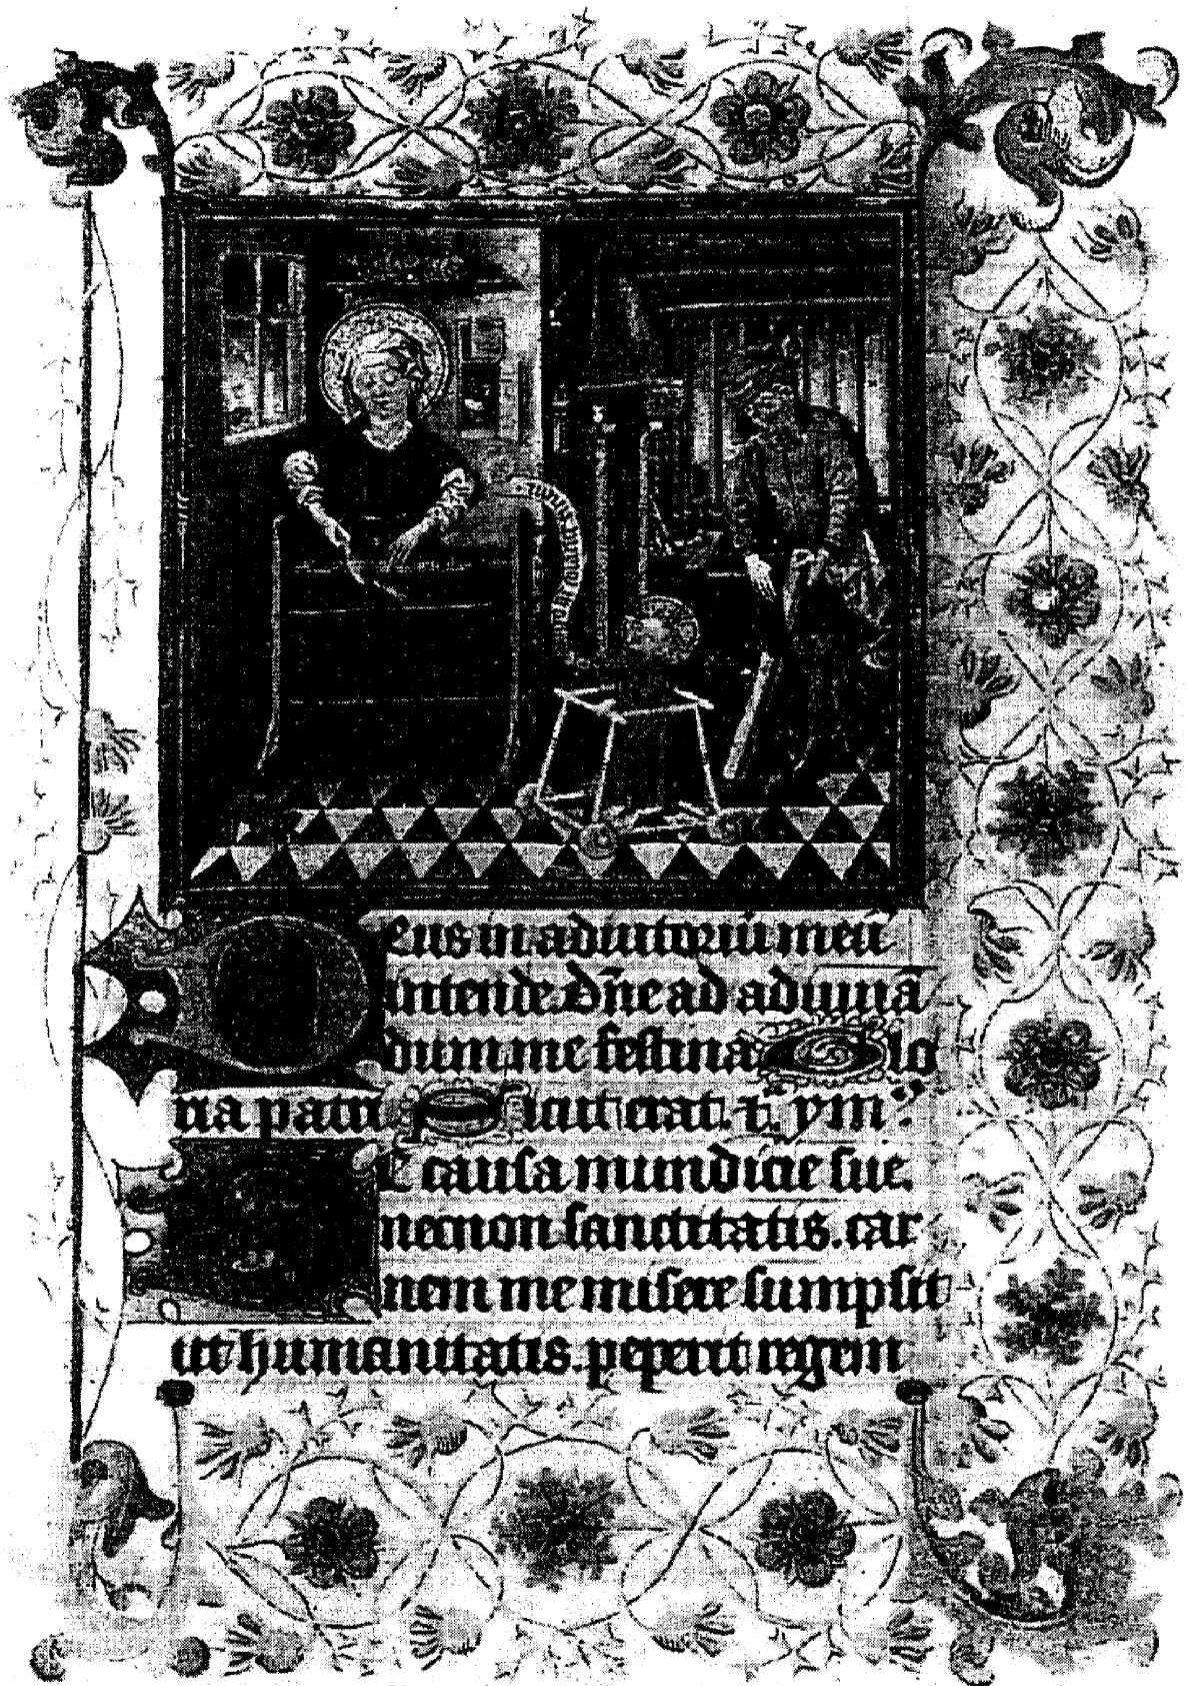 Deus in adiutoriū meū
intende Dn̄e ad adiuuā
dum me festina Glo
ria patri Sicut erat. ⁊. ym̄
E causa mundicie sue.
necnon sanctitatis. car
nem me misere sumpsit
ut humanitatis. peperit regem